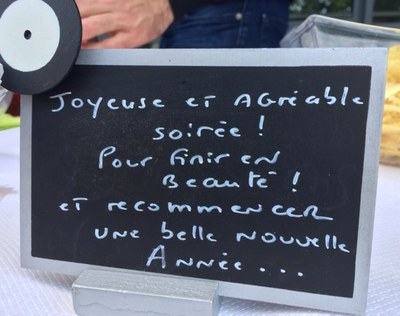 Joyeuse et Agréable
soirée !
Pour finir en
Beauté !
et recommencer
une belle nouvelle
Année . . .